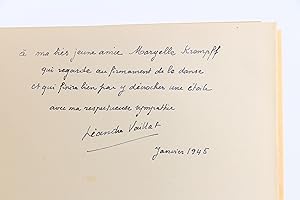 à ma très jeune amie Maryelle Krempff
qui regarde au firmament de la danse
et qui finira bien par y décrocher une étoile
avec ma respectueuse sympathie
Léandre Vaillat
Janvier 1945